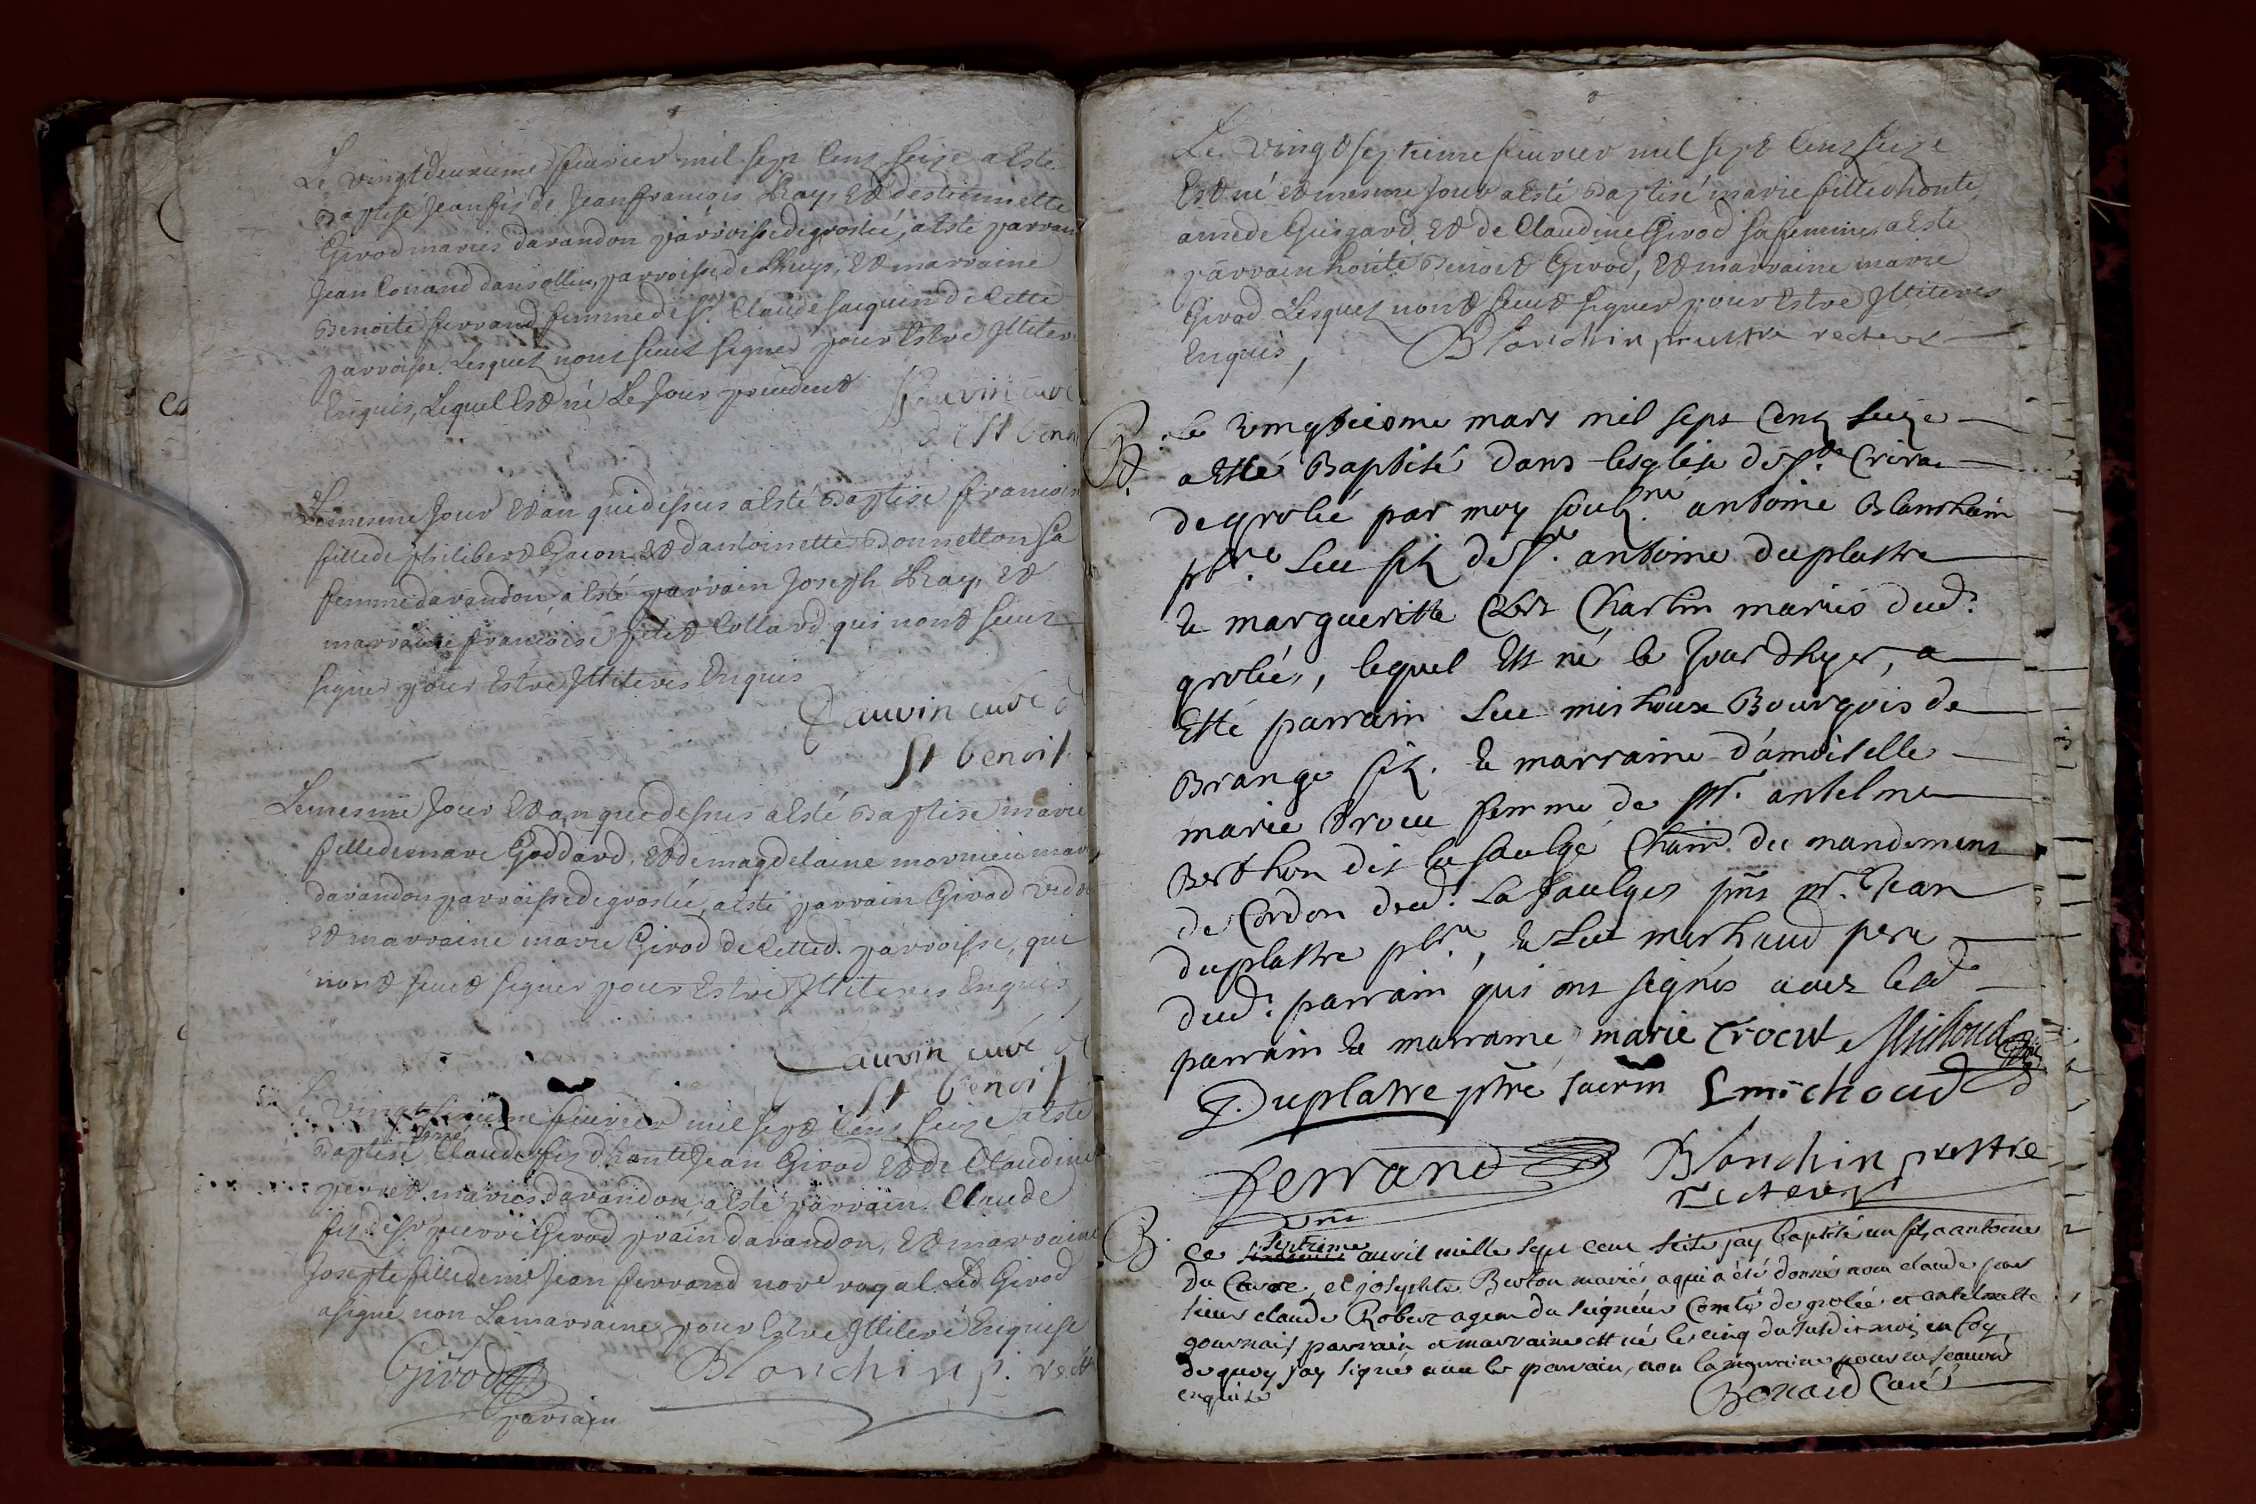 Le vingtdeuxieme feuvrier mil sept cens seize a esté
Baptisé Jean fis de Jean francois Bray, et destiennette
Girod maries davandon parroisse de groslée, a esté parrain
Jean Conand parroisse de et marraine
Benoite ferrand femme de sr. Claude Jacquin de cette
parroisse. Lesquels nont sceut signer pour estre Illiteres
Enquis, Lequel est né Le Jour precedent
Gauvin curé
de st benoi
Le mesme Jour et an que dessus a esté Baptisé francoise
fille de philibert Gacon et dantoinette Bonnetton sa
femme davandon a esté parrain Joseph Bray et
marraine francoise Collard qui nont sceut
signer pour Estre Illiteres Enquis
Gauvin curé d
st benoist
Le mesme Jour et an que dessus a esté Baptisé marie
fille de marc Goddard, et de magdelaine mornieu mar
davandon parroisse de groslée, a esté parrain Girod
et marraine marie Girod de cetted. parroisse, qui
nont sceut signer pour Estre Illiteres Enquis
Gauvin curé de
st benoist
Le vingt feuvrier mil sept cens seize a esté
Baptisé Claude fis dhonte Jean Girod et de Claudine
perret mariés davandon, a esté parrain Claude
fis de sr pierre Girod davandon, et marraine
Josepte fille de mre Jean ferrand nore royal Led Girod
a signé non La marraine pour Estre Illiteré Enquise
Girod
parrain
Blanchin p. rect
Le vingt septieme feuvrier mil sept cens seize
Est né et mesme Jour a Esté Baptisé marie fille dhonte
amede Guigard et de Claudine Girod sa femme, a Esté
parrain honte Benoit Girod, et marraine marie
Girod Lesquels nont sceut signer pour Estre Illiteres
Enquis, Blanchin prestre recteur
B. Le vingtiesme mars mil sept cens seize
a Esté Baptisé dans lesglise de
de grolée par moy soubné antoine Blanchain
pbre. Luc fils de sr. antoine duplastre
& margueritte Clert Charlin mariés dud:
grolée, lequel Est né le Jour dhyer, a
Esté parrain Luc mishoux Bourgois de
Brange fils. & marraine damoiselle
marie Crocu femme de mr. antelme
Berthon dit la saulge Chain. du mandement
de Cordon dud. La saulges pnts mr. Jean
duplastre pbre, & Luc mishaud pere
dud: parrain qui ont signés avec led
parrain & marraine marie Crocut Michoud
J. Duplatre ptre sacrin L michoud
ferrand Blanchin prestre
recteur
B. Ce septieme avril mille sept cent seize jay baptisé un fils a antoine
du Carre, et josephte Berton mariés a qui a été donné nom claude par
sieur claude Robert agent du seigneur Comte de grolée et antelmette
gournais parrain et marraine est né le cinq du susdit mois en foy
de quoy jay signé avec le parrain, non la marraine pour ne scavoir
enquise Bonard Curé